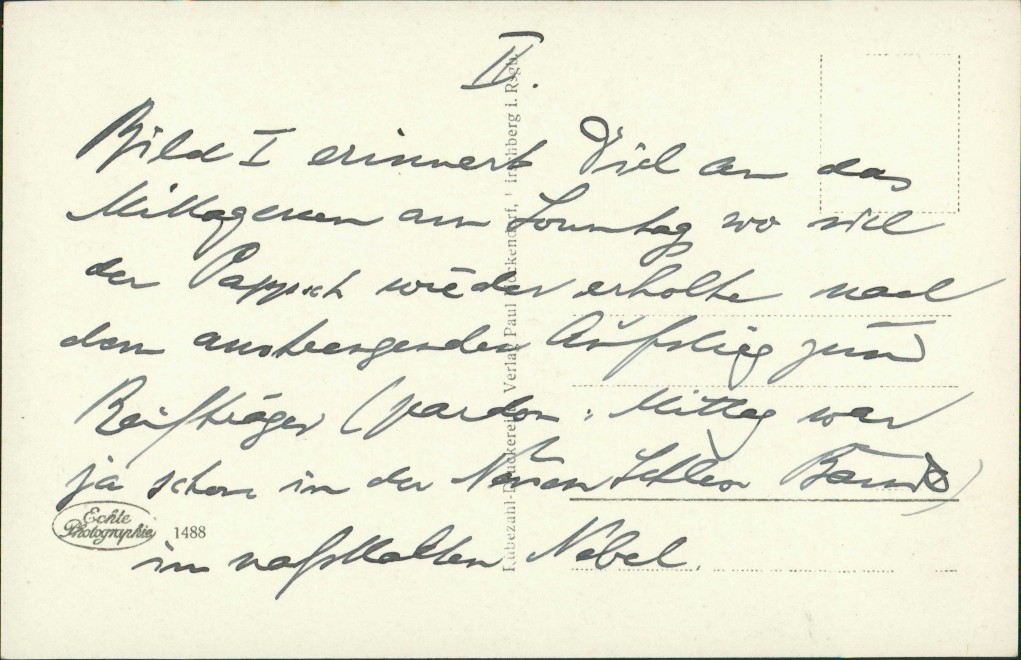 II.
Bild I erinnert Dich an das
Mittagessen am Sonntag wo sich
der Pappich wieder erholte nach
dem anstrengenden Aufstieg zum
Reifträger (pardon: Mittag war
ja schon in der Neuen Schles. Baude)
im naßkalten Nebel.
Echte
Photographie 1488
Rübezahl-Druckerei, Verlag Paul Höckendorf, Hirschberg i. Rsgb.